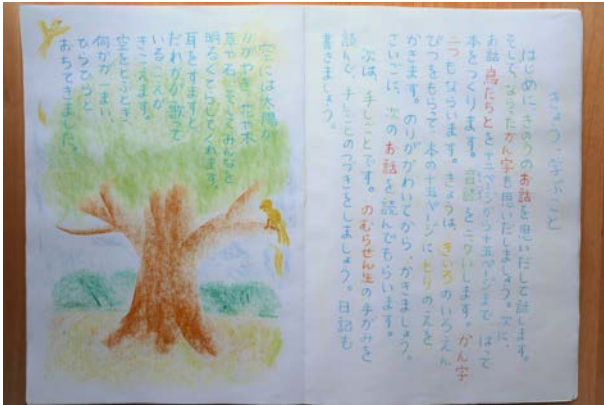 きょう 学ぶこと
はじめに、きのうのお話を思いだして話します。
そして、ならったかん字も思いだしましょう。次に、
お話 鳥たちとを十二ページから十五ページまで はって
本をつくります。音読を二かいします。かん字
二つもならいます。きょうは、きいろのいろえん
ぴつをもらって、本の十五ページに もりのえを
かきます。のりがかわいてから、かきましょう。
さいごに、次のお話を読んでもらいます。
次は、手しごとです。のむらせん生の手がみを
読んで、手しごとのつづきをしましょう。日記も
書きましょう。
空には太陽が
かがやき、花や木
草や石、そしてみんなを
明るくてらしてくれます。
耳をすますと、
だれかが歌って
いるこえが
きこえます。
空をとぶとき
何かが一まい、
ひらひらと
おちてきました。